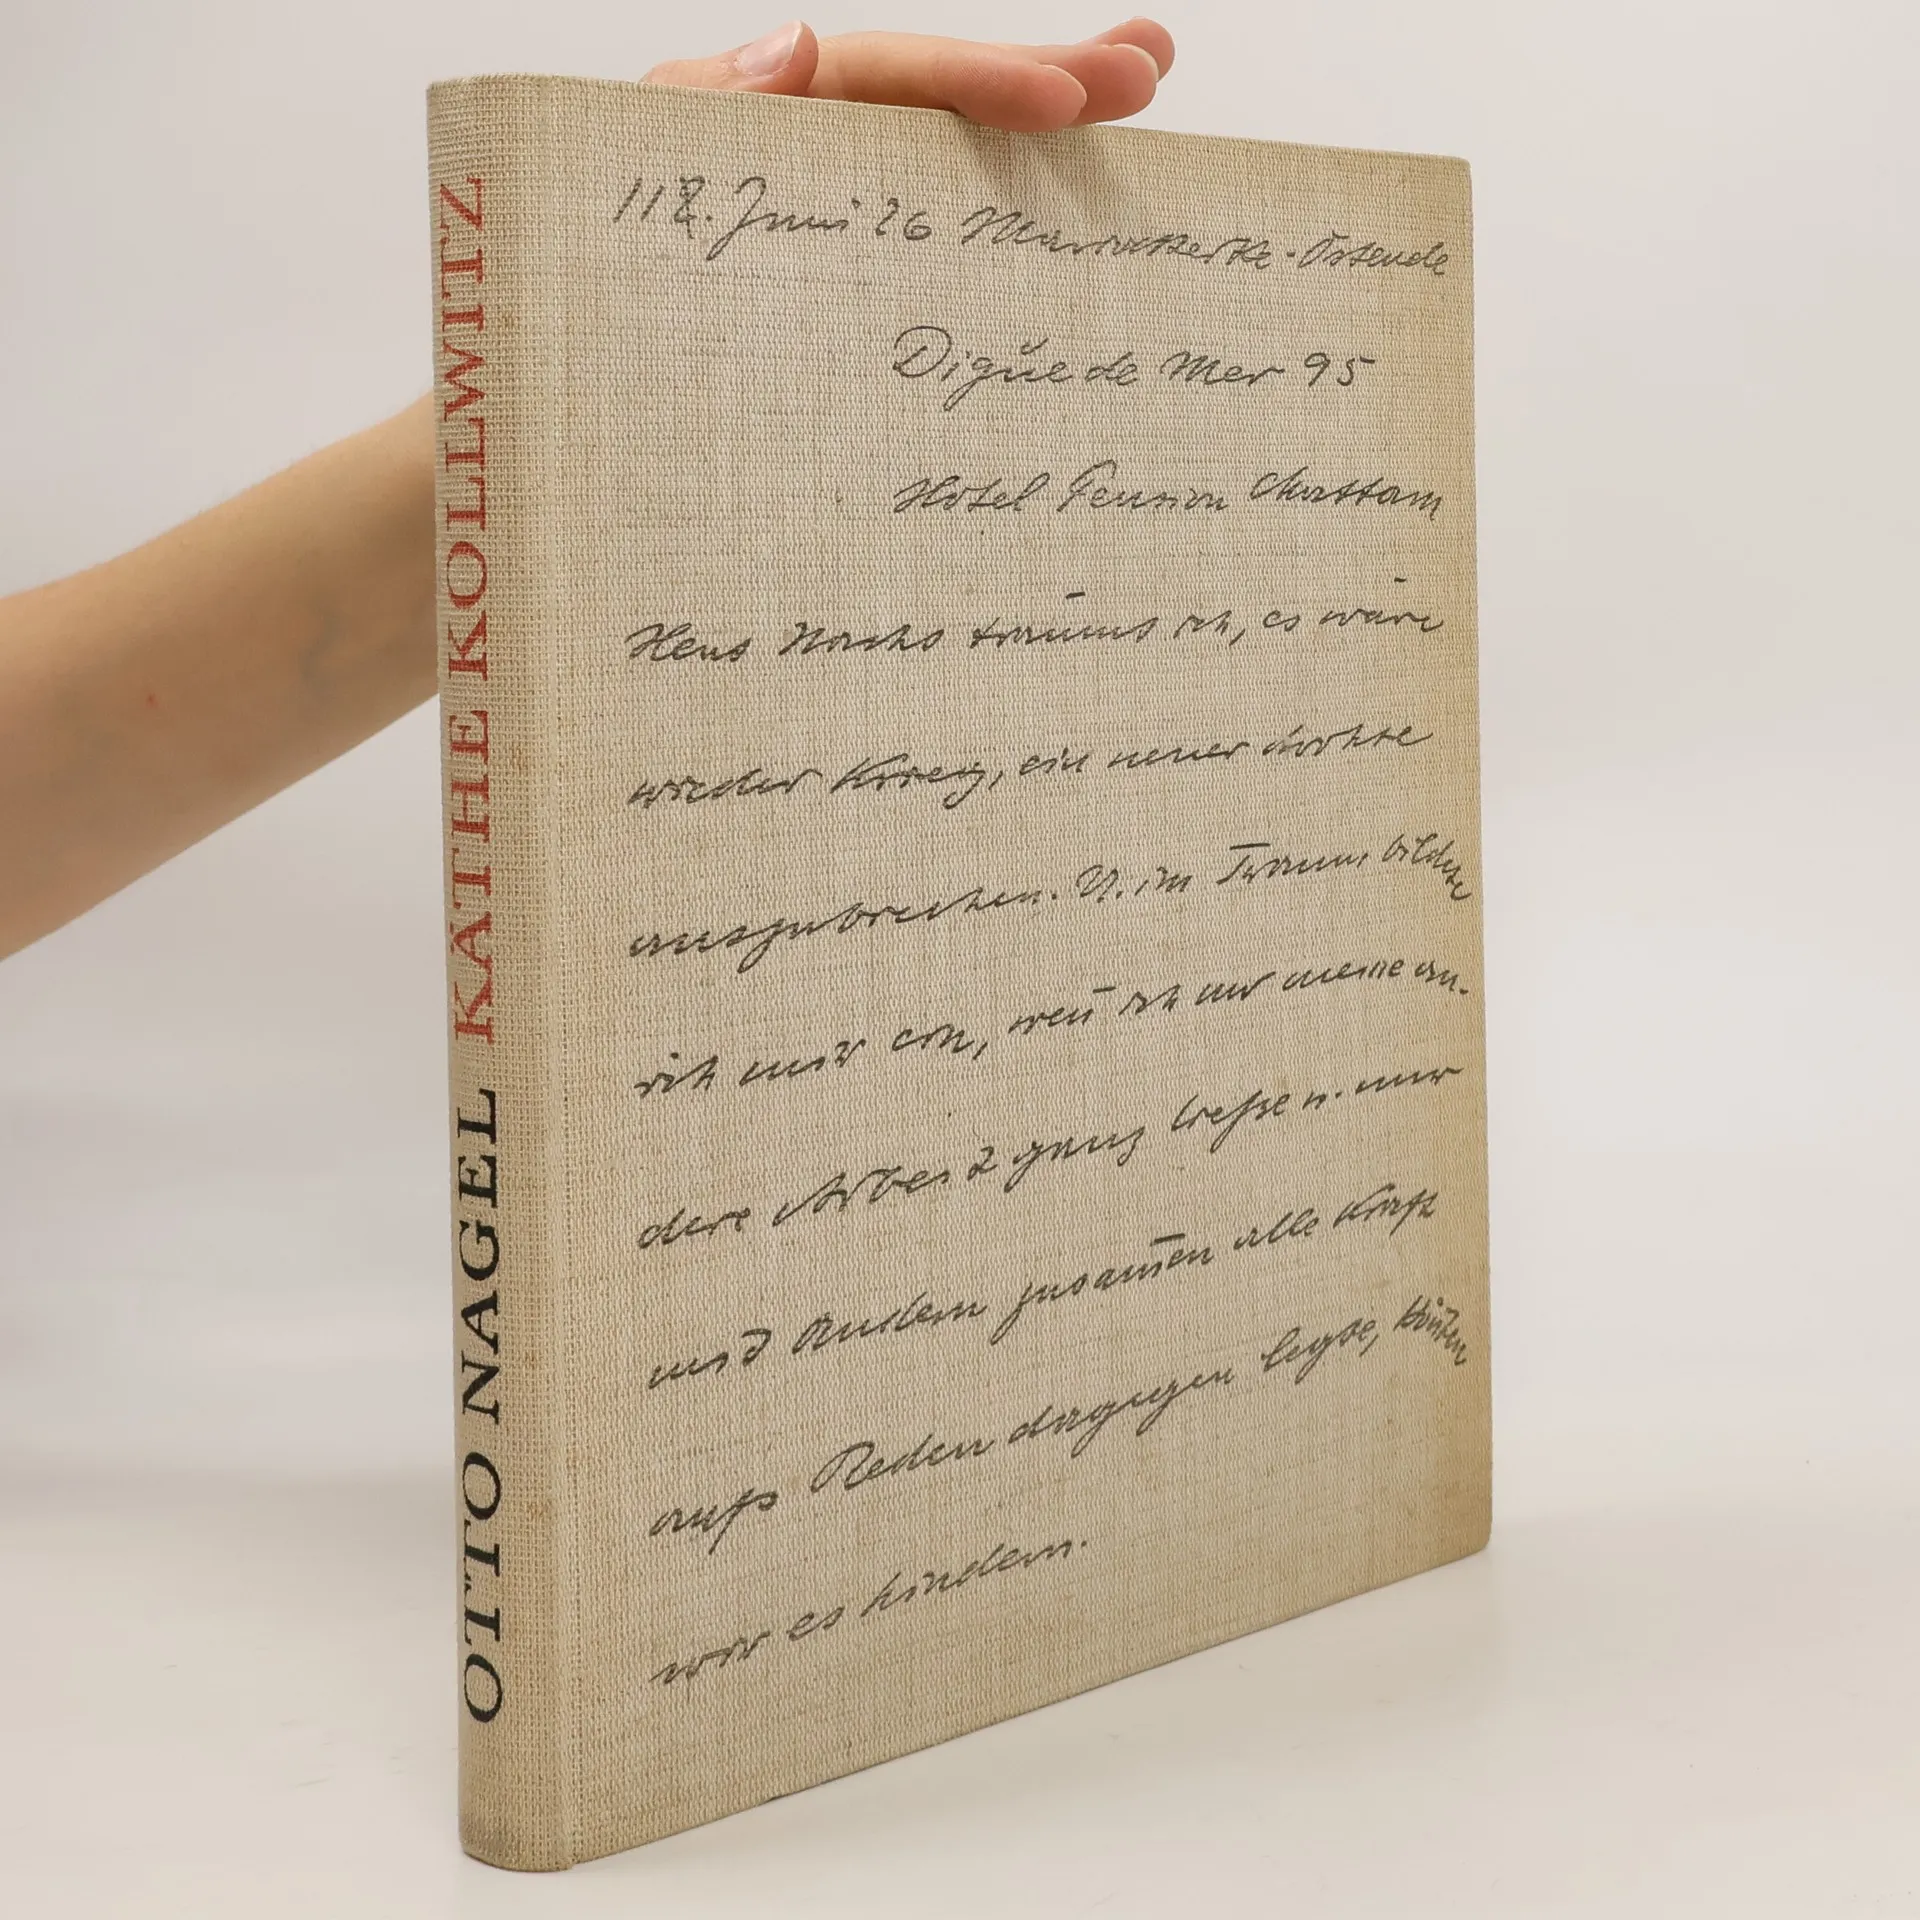 OTTO NAGEL KÄTHE KOLLWITZ
Juni 26 Mariakerke-Ostende
Digŭe de Mer 95
Hotel Pension
Heut Nacht träumt ich, es wäre
wieder Krieg, ein neuer drohte
auszubrechen. U. im Traum bildete
ich mir ein, wen̄ ich nur meine an-
dere Arbeit ganz ließe u. nur
mit Andern zusam̄en alle Kraft
aufs Reden dagegen legte, kön̄ten
wir es hindern.